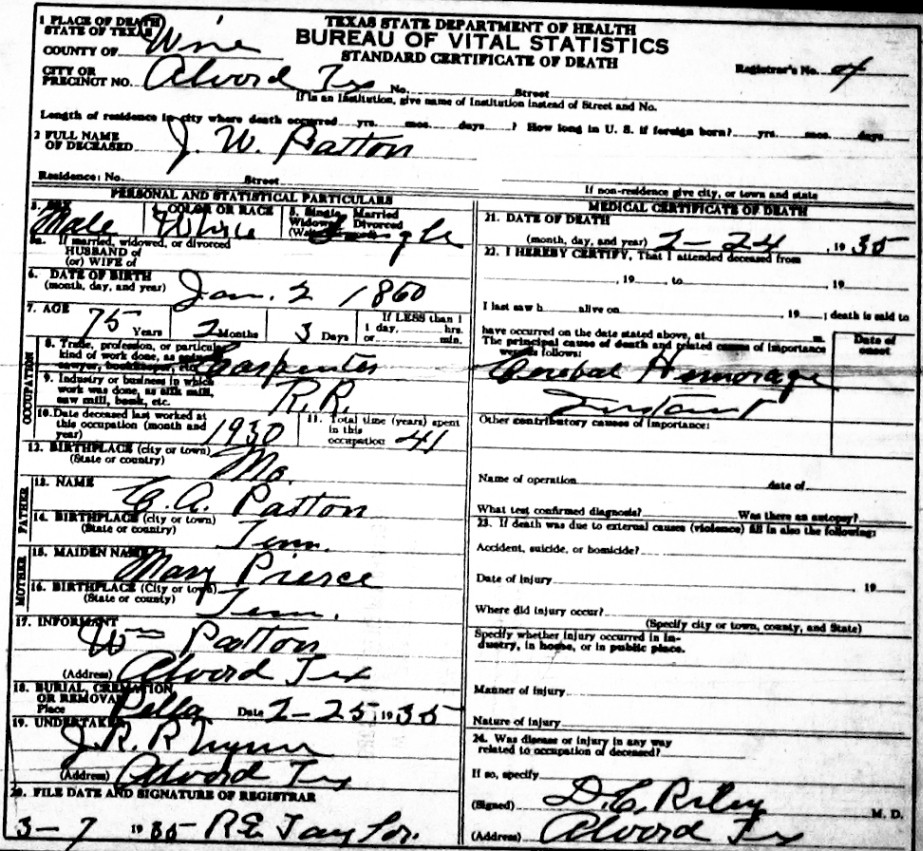 TEXAS STATE DEPARTMENT OF HEALTH
BUREAU OF VITAL STATISTICS
STANDARD CERTIFICATE OF DEATH
1 PLACE OF DEATH
STATE OF TEXAS
COUNTY OF Wise
CITY OR PRECINCT NO. Alvord Tex No. Street
Registrar's No. 4
If in an Institution, give name of Institution instead of Street and No.
Length of residence in city where death occurred yrs. mos. days? How long in U. S. if foreign born? yrs. mos. days
2 FULL NAME OF DECEASED J. W. Patton
Residence: No. Street
If non-residence give city, or town and state
PERSONAL AND STATISTICAL PARTICULARS
3. SEX Male
4. COLOR OR RACE White
5. Single Married Widowed Divorced Single
5a. If married, widowed, or divorced
HUSBAND of
(or) WIFE of
6. DATE OF BIRTH
(month, day, and year) Jan. 2 1860
7. AGE 75 Years 2 Months 3 Days
If LESS than 1
1 day, hrs.
or min.
OCCUPATION
8. Trade, profession, or particular
kind of work done, as
sawyer, bookkeeper, etc. Carpenter
9. Industry or business in which
work was done, as silk mill,
saw mill, bank, etc. R.R.
10. Date deceased last worked at
this occupation (month and
year) 1930
11. Total time (years) spent
in this
occupation 41
12. BIRTHPLACE (city or town) Mo.
(State or country)
FATHER
13. NAME C. A. Patton
14. BIRTHPLACE (city or town)
(State or country) Tenn.
MOTHER
15. MAIDEN NAME Mary Pierce
16. BIRTHPLACE (City or town)
(State or county) Tenn.
17. INFORMANT Wm Patton
(Address) Alvord Tex
18. BURIAL, CREMATION
OR REMOVAL
Place Pella Date 2-25, 1935
19. UNDERTAKER
(Address) Alvord Tex
20. FILE DATE AND SIGNATURE OF REGISTRAR
3-7 1935 R.E. Taylor
MEDICAL CERTIFICATE OF DEATH
21. DATE OF DEATH
(month, day, and year) 2-24, 1935
22. I HEREBY CERTIFY, That I attended deceased from
, 19 , to , 19
I last saw h alive on , 19 ; death is said to
have occurred on the date stated above, at m.
The principal cause of death and related causes of importance
were as follows:
Date of onset
Cerebal Hemorage
Instant
Other contributory causes of importance:
Name of operation date of
What test confirmed diagnosis? Was there an autopsy?
23. If death was due to external causes (violence) fill in also the following:
Accident, suicide, or homicide?
Date of injury , 19
Where did injury occur?
(Specify city or town, county, and State)
Specify whether injury occurred in in-
dustry, in home, or in public place.
Manner of injury
Nature of injury
24. Was disease or injury in any way
related to occupation of deceased?
If so, specify
(Signed) D.C. Riley M. D.
(Address) Alvord Tex